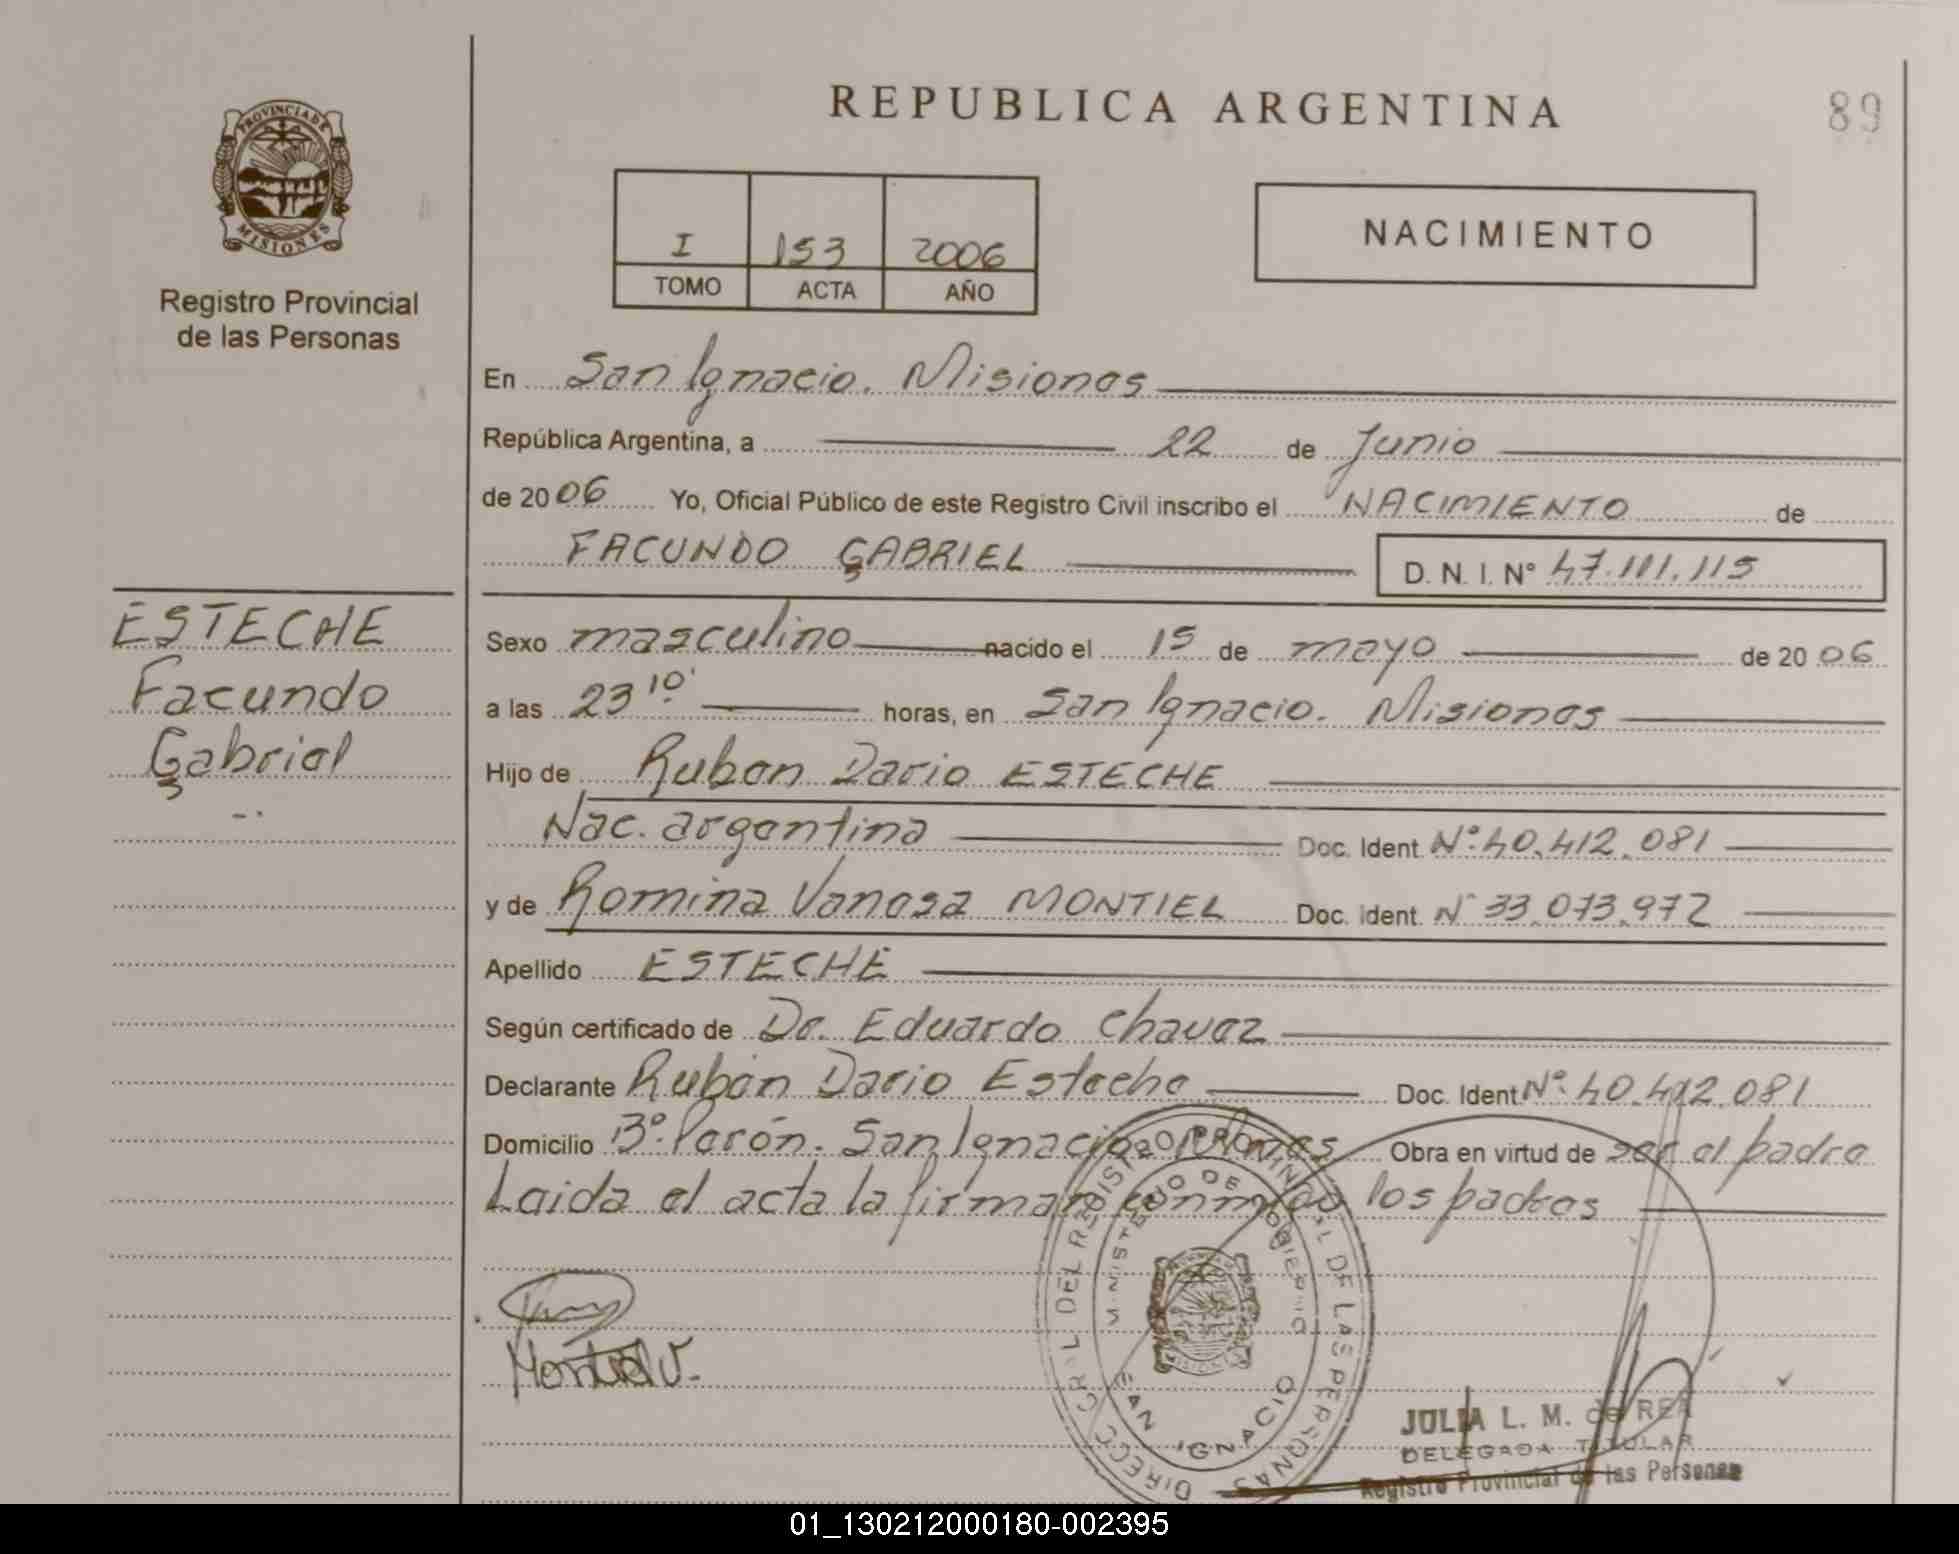 REPUBLICA ARGENTINA
89
PROVINCIA DE
MISIONES
Registro Provincial
de las Personas
I 153 2006
TOMO ACTA AÑO
NACIMIENTO
En San Ignacio. Misiones
República Argentina, a 22 de Junio
de 2006 Yo, Oficial Público de este Registro Civil inscribo el NACIMIENTO de
FACUNDO GABRIEL D. N. I. Nº 47.111.115
ESTECHE
Facundo
Gabriel
Sexo masculino nacido el 15 de mayo de 2006
a las 23 10' horas, en San Ignacio. Misiones
Hijo de Ruben Dario ESTECHE
Nac. argentina Doc. Ident. Nº 40.412.081
y de Romina Vanesa MONTIEL Doc. Ident. Nº 33.073.972
Apellido ESTECHE
Según certificado de Dr. Eduardo Chavez
Declarante Rubén Dario Esteche Doc. Ident Nº 40.412.081
Domicilio Bº. Perón. San Ignacio. Mnes Obra en virtud de ser el padre
Leida el acta la firman conmigo los padres
Montiel V.
DIRECC. GRAL DEL REGISTRO PROVINCIAL DE LAS PERSONAS
MINISTERIO DE GOBIERNO
MISIONES
SAN IGNACIO
JULIA L. M. de REA
DELEGADA TITULAR
Registro Provincial de las Personas
01_130212000180-002395